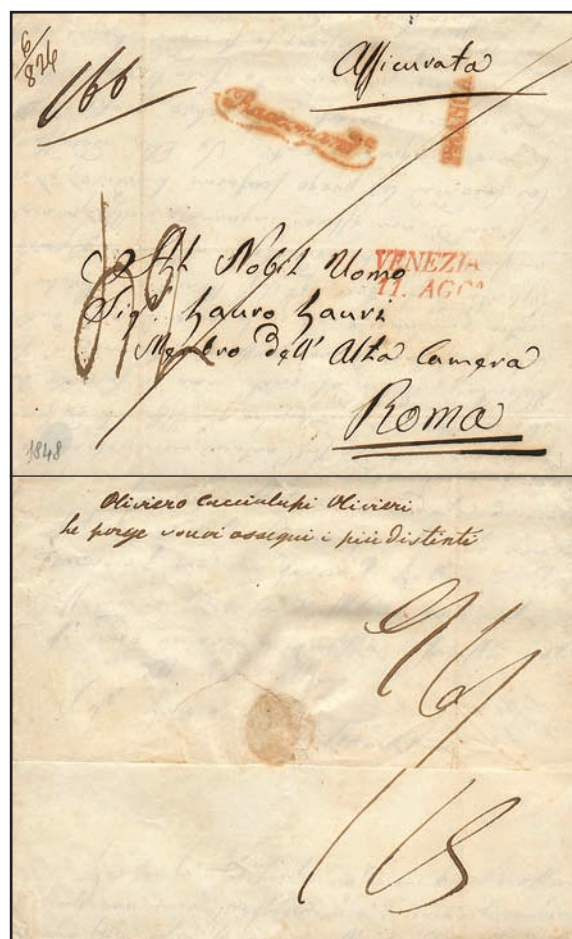 6/824
166
Assicurata
FRANCA
VENEZIA
11. AGO
Nobil Uomo
Sig. Lauro Lauri
Membro dell' Alta Camera
Roma
1848
Oliviero Caccialupi Olivieri
Le porge i suoi ossequi i più distinti